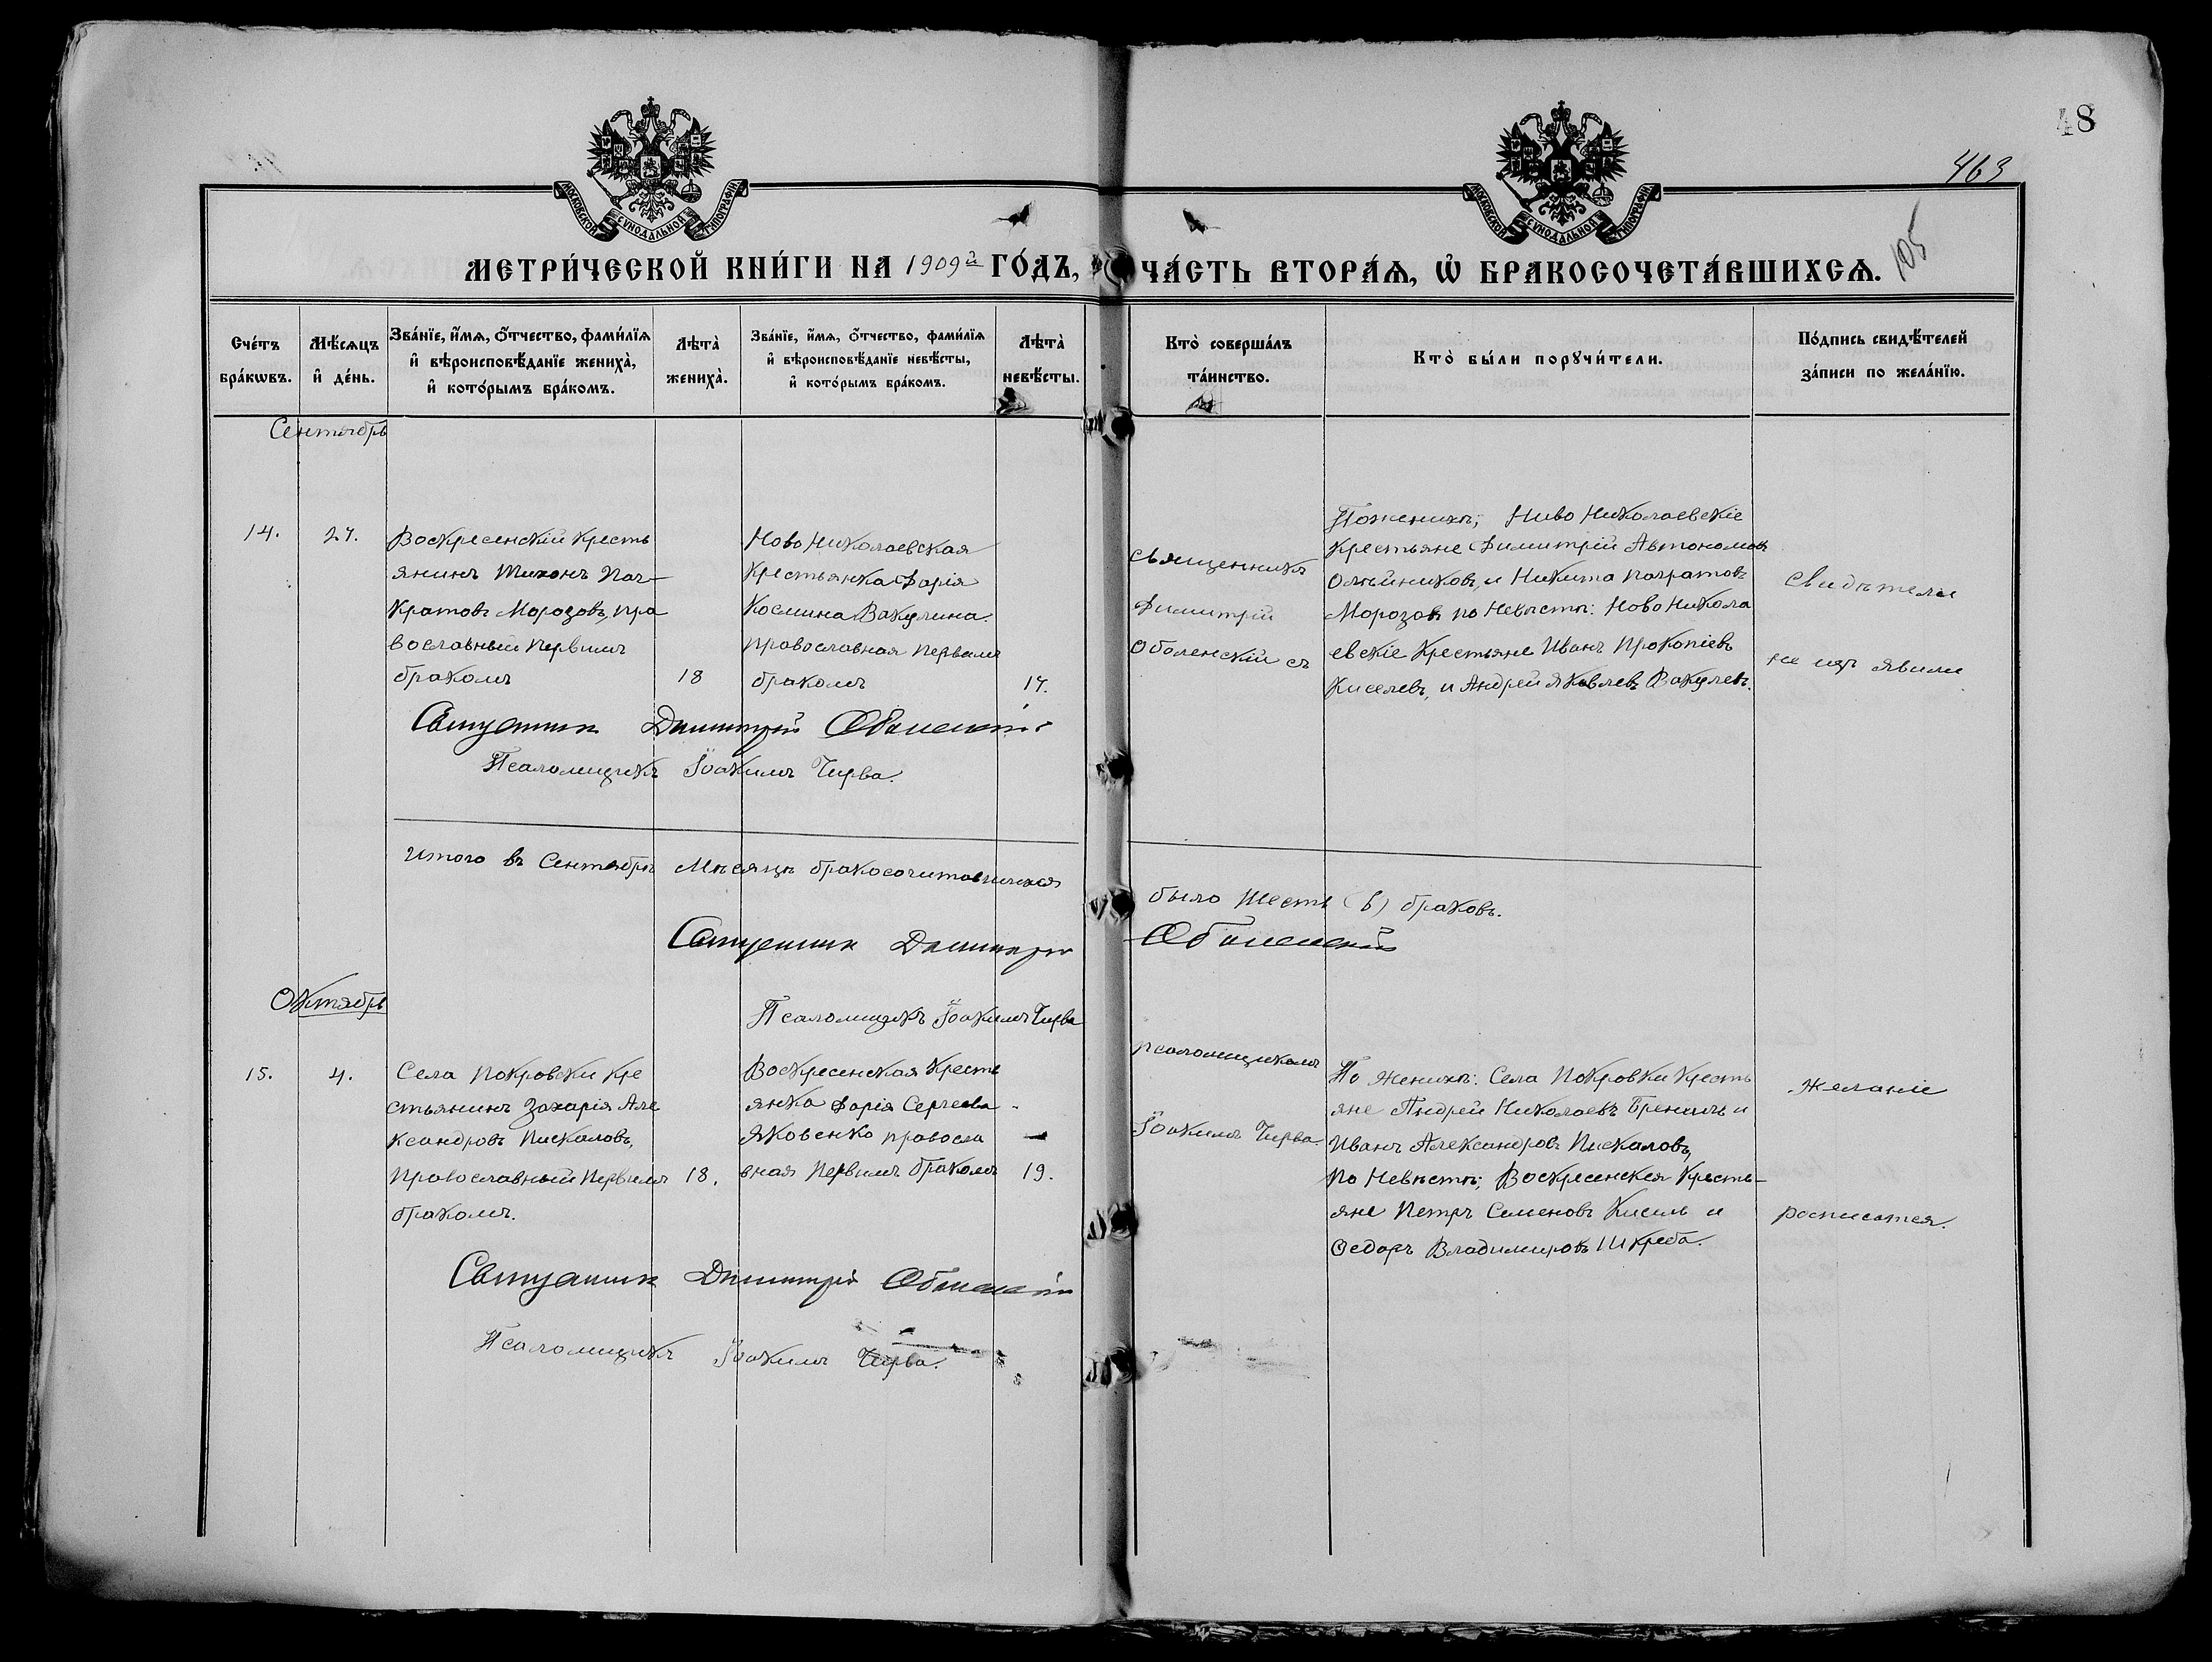 48
463
105
МОСКОВСКОЙ СѴНОДАЛЬНОЙ ТИПОГРАФІИ
МОСКОВСКОЙ СѴНОДАЛЬНОЙ ТИПОГРАФІИ
МЕТРИ́ЧЕСКОЙ КНИ́ГИ НА 1909й ГО́ДЪ,
ЧА́СТЬ ВТОРА́Ѧ, Ѡ҆ БРАКОСОЧЕТА́ВШИХСѦ.
Сче́тъ бра́кѡвъ.
Мѣ́сѧцъ и҆ де́нь.
Зва́нїе, и҆́мѧ, ѻ҆́тчество, фами́лїѧ и҆ вѣроисповѣ́данїе жениха̀, и҆ кото́рымъ бра́комъ.
Лѣта̀ жениха̀.
Зва́нїе, и҆́мѧ, ѻ҆́тчество, фами́лїѧ и҆ вѣроисповѣ́данїе невѣ́сты, и҆ кото́рымъ бра́комъ.
Лѣта̀ невѣ́сты.
Кто̀ соверша́лъ та́инство.
Кто̀ бы́ли порꙋчи́тели.
По́дпись свидѣ́телей за́писи по жела́нїю.
Сентябрь
14.
27.
Воскресенскій кресть
янинъ Тихонъ Пан-
кратовъ Морозовъ, пра
вославный первымъ
бракомъ
18
Ново Николаевская
крестьянка Дарія
Космина Вакулина.
православная первымъ
бракомъ
17.
священникъ
Димитрій
Оболенскій съ
По женихѣ; Ново Николаевскіе
крестьяне Димитрій Автономовъ
Олейниковъ, и Никита Панратовъ
Морозовъ по Невѣстѣ: Ново Никола
евскіе крестьяне Иванъ Прокопіевъ
Киселевъ, и Андрей Яковлевъ Вакулевъ.
свидѣтели
не изъ явили
Священникъ Димитрій Оболенскій
Псаломщикъ Іоакимъ Чирва.
Итого въ Сентябрѣ Мѣсяцѣ бракосочитавшихся
было шесть (6) браковъ.
Священникъ Димитрій Оболенскій
Октябрь
Псаломщикъ Іоакимъ Чирва
15.
4.
Села Покровки кре
стьянинъ Захарія Але
ксандровъ Пискаловъ,
православный первымъ
бракомъ.
18.
Воскресенская кресть
янка Дарія Сергеева
Яковенко правосла
вная первымъ бракомъ
19.
псаломщикомъ
Іоакимъ Чирва.
По женихѣ: Села Покровки кресть
яне Андрей Николаевъ и
Иванъ Александровъ Пискаловъ,
по Невѣстѣ; Воскресенскія кресть-
яне Петръ Семеновъ Кисиль и
Ѳедоръ Владимировъ Шкреба.
желаніе
росписатся.
Священникъ Димитрій Оболенскій
Псаломщикъ Іоакимъ Чирва.